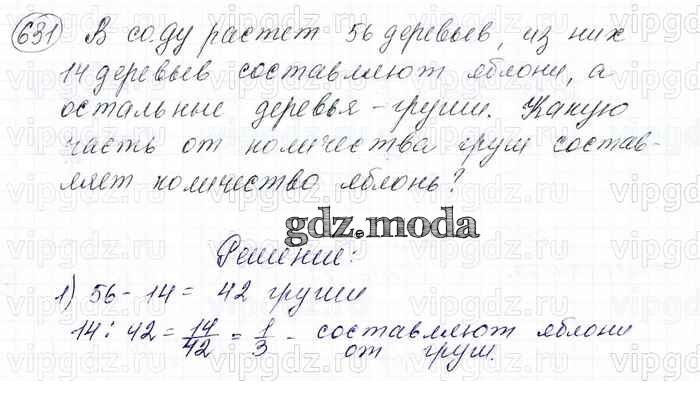 631 В саду растет 56 деревьев, из них
14 деревьев составляют яблони, а
остальные деревья - груши. Какую
часть от количества груш состав-
ляет количество яблонь?
gdz.moda
Решение:
1) 56 - 14 = 42 груши
14 : 42 = 14/42 = 1/3 - составляют яблони
от груш.